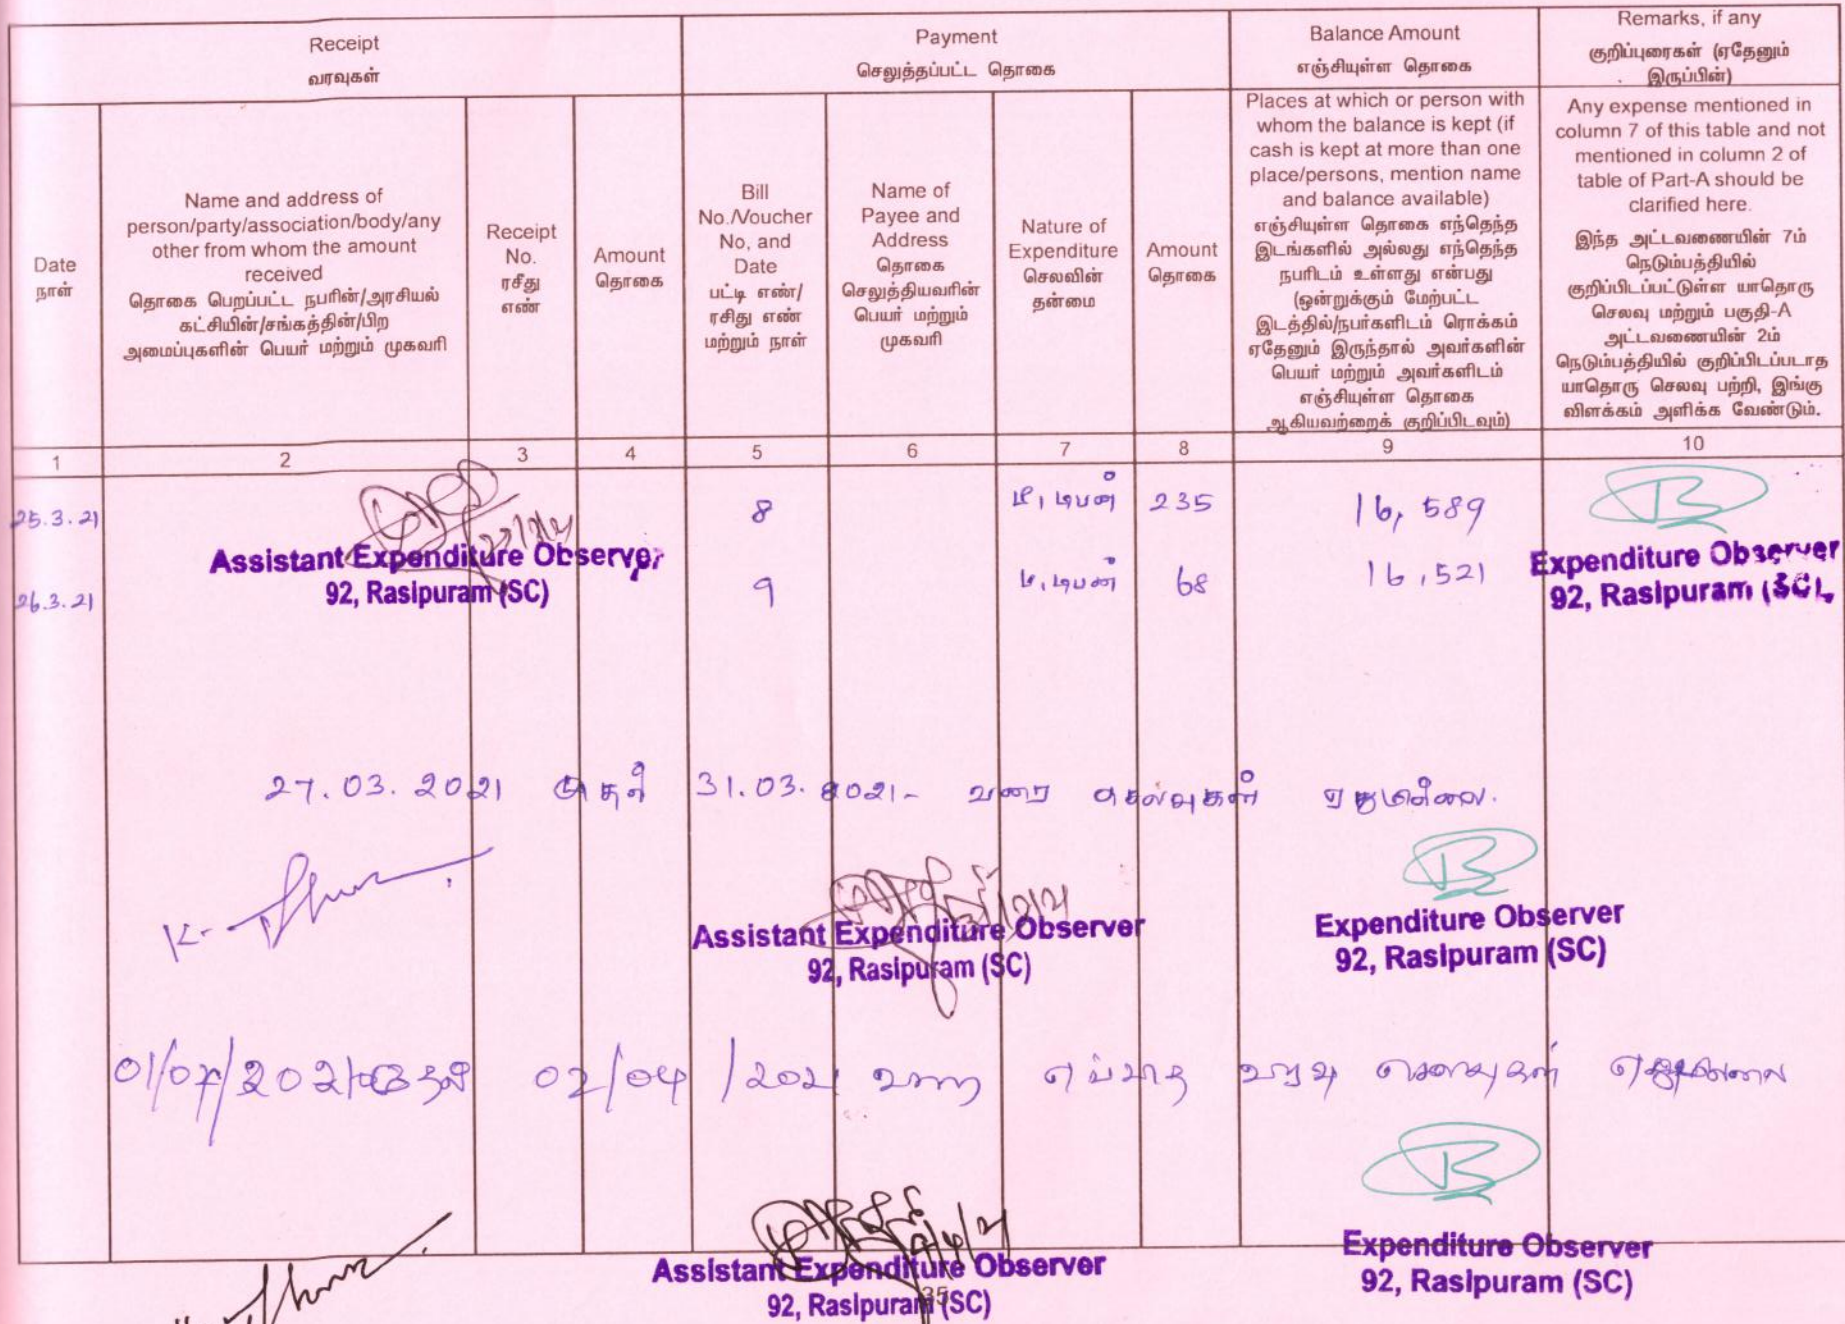 Receipt
வரவுகள்
Payment
செலுத்தப்பட்ட தொகை
Balance Amount
எஞ்சியுள்ள தொகை
Remarks, if any
குறிப்புரைகள் (ஏதேனும்
இருப்பின்)
Date
நாள்
Name and address of
person/party/association/body/any
other from whom the amount
received
தொகை பெறப்பட்ட நபரின்/அரசியல்
கட்சியின்/சங்கத்தின்/பிற
அமைப்புகளின் பெயர் மற்றும் முகவரி
Receipt
No.
ரசீது
எண்
Amount
தொகை
Bill
No./Voucher
No, and
Date
பட்டி எண்/
ரசிது எண்
மற்றும் நாள்
Name of
Payee and
Address
தொகை
செலுத்தியவரின்
பெயர் மற்றும்
முகவரி
Nature of
Expenditure
செலவின்
தன்மை
Amount
தொகை
Places at which or person with
whom the balance is kept (if
cash is kept at more than one
place/persons, mention name
and balance available)
எஞ்சியுள்ள தொகை எந்தெந்த
இடங்களில் அல்லது எந்தெந்த
நபரிடம் உள்ளது என்பது
(ஒன்றுக்கும் மேற்பட்ட
இடத்தில்/நபர்களிடம் ரொக்கம்
ஏதேனும் இருந்தால் அவர்களின்
பெயர் மற்றும் அவர்களிடம்
எஞ்சியுள்ள தொகை
ஆகியவற்றைக் குறிப்பிடவும்)
Any expense mentioned in
column 7 of this table and not
mentioned in column 2 of
table of Part-A should be
clarified here.
இந்த அட்டவணையின் 7ம்
நெடும்பத்தியில்
குறிப்பிடப்பட்டுள்ள யாதொரு
செலவு மற்றும் பகுதி-A
அட்டவணையின் 2ம்
நெடும்பத்தியில் குறிப்பிடப்படாத
யாதொரு செலவு பற்றி, இங்கு
விளக்கம் அளிக்க வேண்டும்.
1 2 3 4 5 6 7 8 9 10
25.3.21 8 டீ, டிபன் 235 16,589
Assistant Expenditure Observer
92, Rasipuram (SC)
Expenditure Observer
92, Rasipuram (SC).
26.3.21 9 டீ, டிபன் 68 16,521
27.03.2021 முதல் 31.03.2021- வரை செலவுகள் ஏதுமில்லை.
Assistant Expenditure Observer
92, Rasipuram (SC)
Expenditure Observer
92, Rasipuram (SC)
02/04/202 வரை வரவு செலவுகள்
Assistant Expenditure Observer
92, Rasipuram (SC)
Expenditure Observer
92, Rasipuram (SC)
35